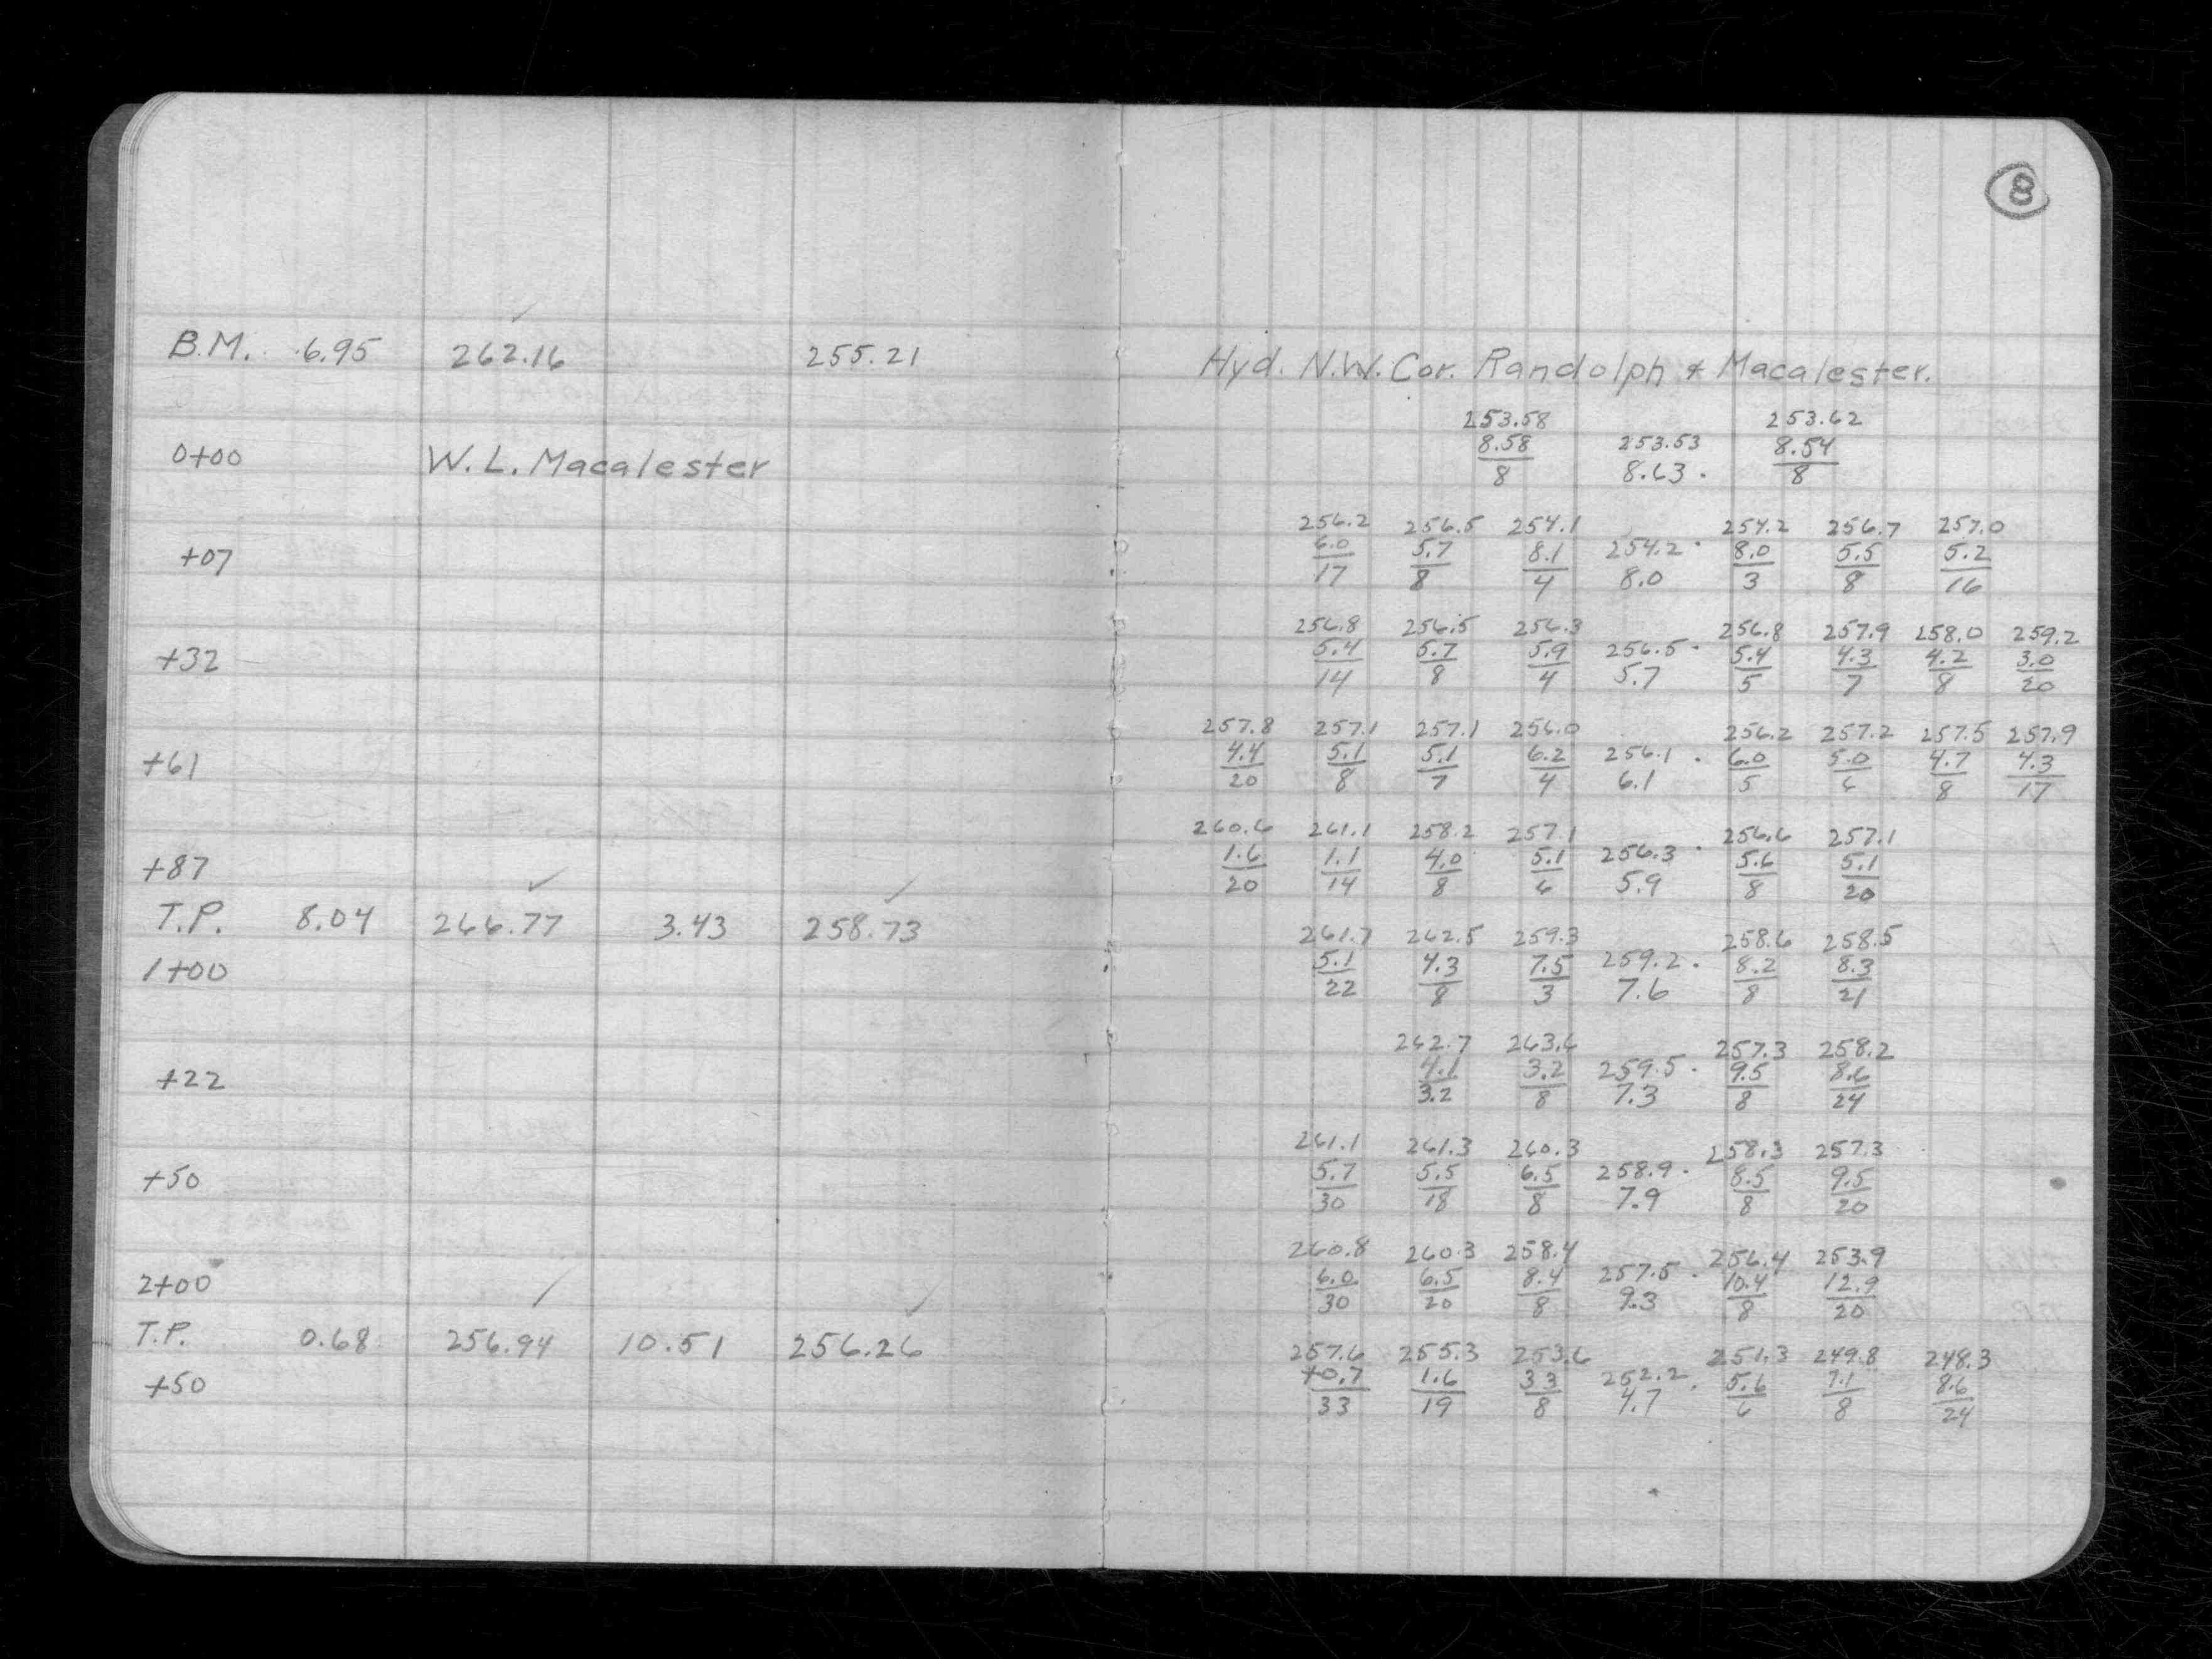 8
B.M. 6.95 262.16 255.21 Hyd. N.W. Cor. Randolph & Macalester.
253.58 253.62
0+00 W.L. Macalester 8.58 253.53 8.54
8 8.63 . 8
256.2 256.5 254.1 254.2 256.7 257.0
+07 6.0 5.7 8.1 254.2 . 8.0 5.5 5.2
17 8 4 8.0 3 8 16
256.8 256.5 256.3 256.8 257.9 258.0 259.2
+32 5.4 5.7 5.9 256.5 . 5.4 4.3 4.2 3.0
14 8 4 5.7 5 7 8 20
257.8 257.1 257.1 256.0 256.2 257.2 257.5 257.9
+61 4.4 5.1 5.1 6.2 256.1 . 6.0 5.0 4.7 4.3
20 8 7 4 6.1 5 6 8 17
260.6 261.1 258.2 257.1 256.6 257.1
+87 1.6 1.1 4.0 5.1 256.3 . 5.6 5.1
20 14 8 6 5.9 8 20
T.P. 8.04 266.77 3.43 258.73
261.7 262.5 259.3 258.6 258.5
1+00 5.1 4.3 7.5 259.2 . 8.2 8.3
22 8 3 7.6 8 21
262.7 263.6 257.3 258.2
+22 4.1 3.2 259.5 . 9.5 8.6
32 8 7.3 8 24
261.1 261.3 260.3 258.3 257.3
+50 5.7 5.5 6.5 258.9 . 8.5 9.5
30 18 8 7.9 8 20
260.8 260.3 258.4 256.4 253.9
2+00 6.0 6.5 8.4 257.5 . 10.4 12.9
30 20 8 9.3 8 20
T.P. 0.68 256.94 10.51 256.26
257.6 255.3 253.6 251.3 249.8 248.3
+50 +0.7 1.6 3.3 252.2 . 5.6 7.1 8.6
33 19 8 4.7 6 8 24